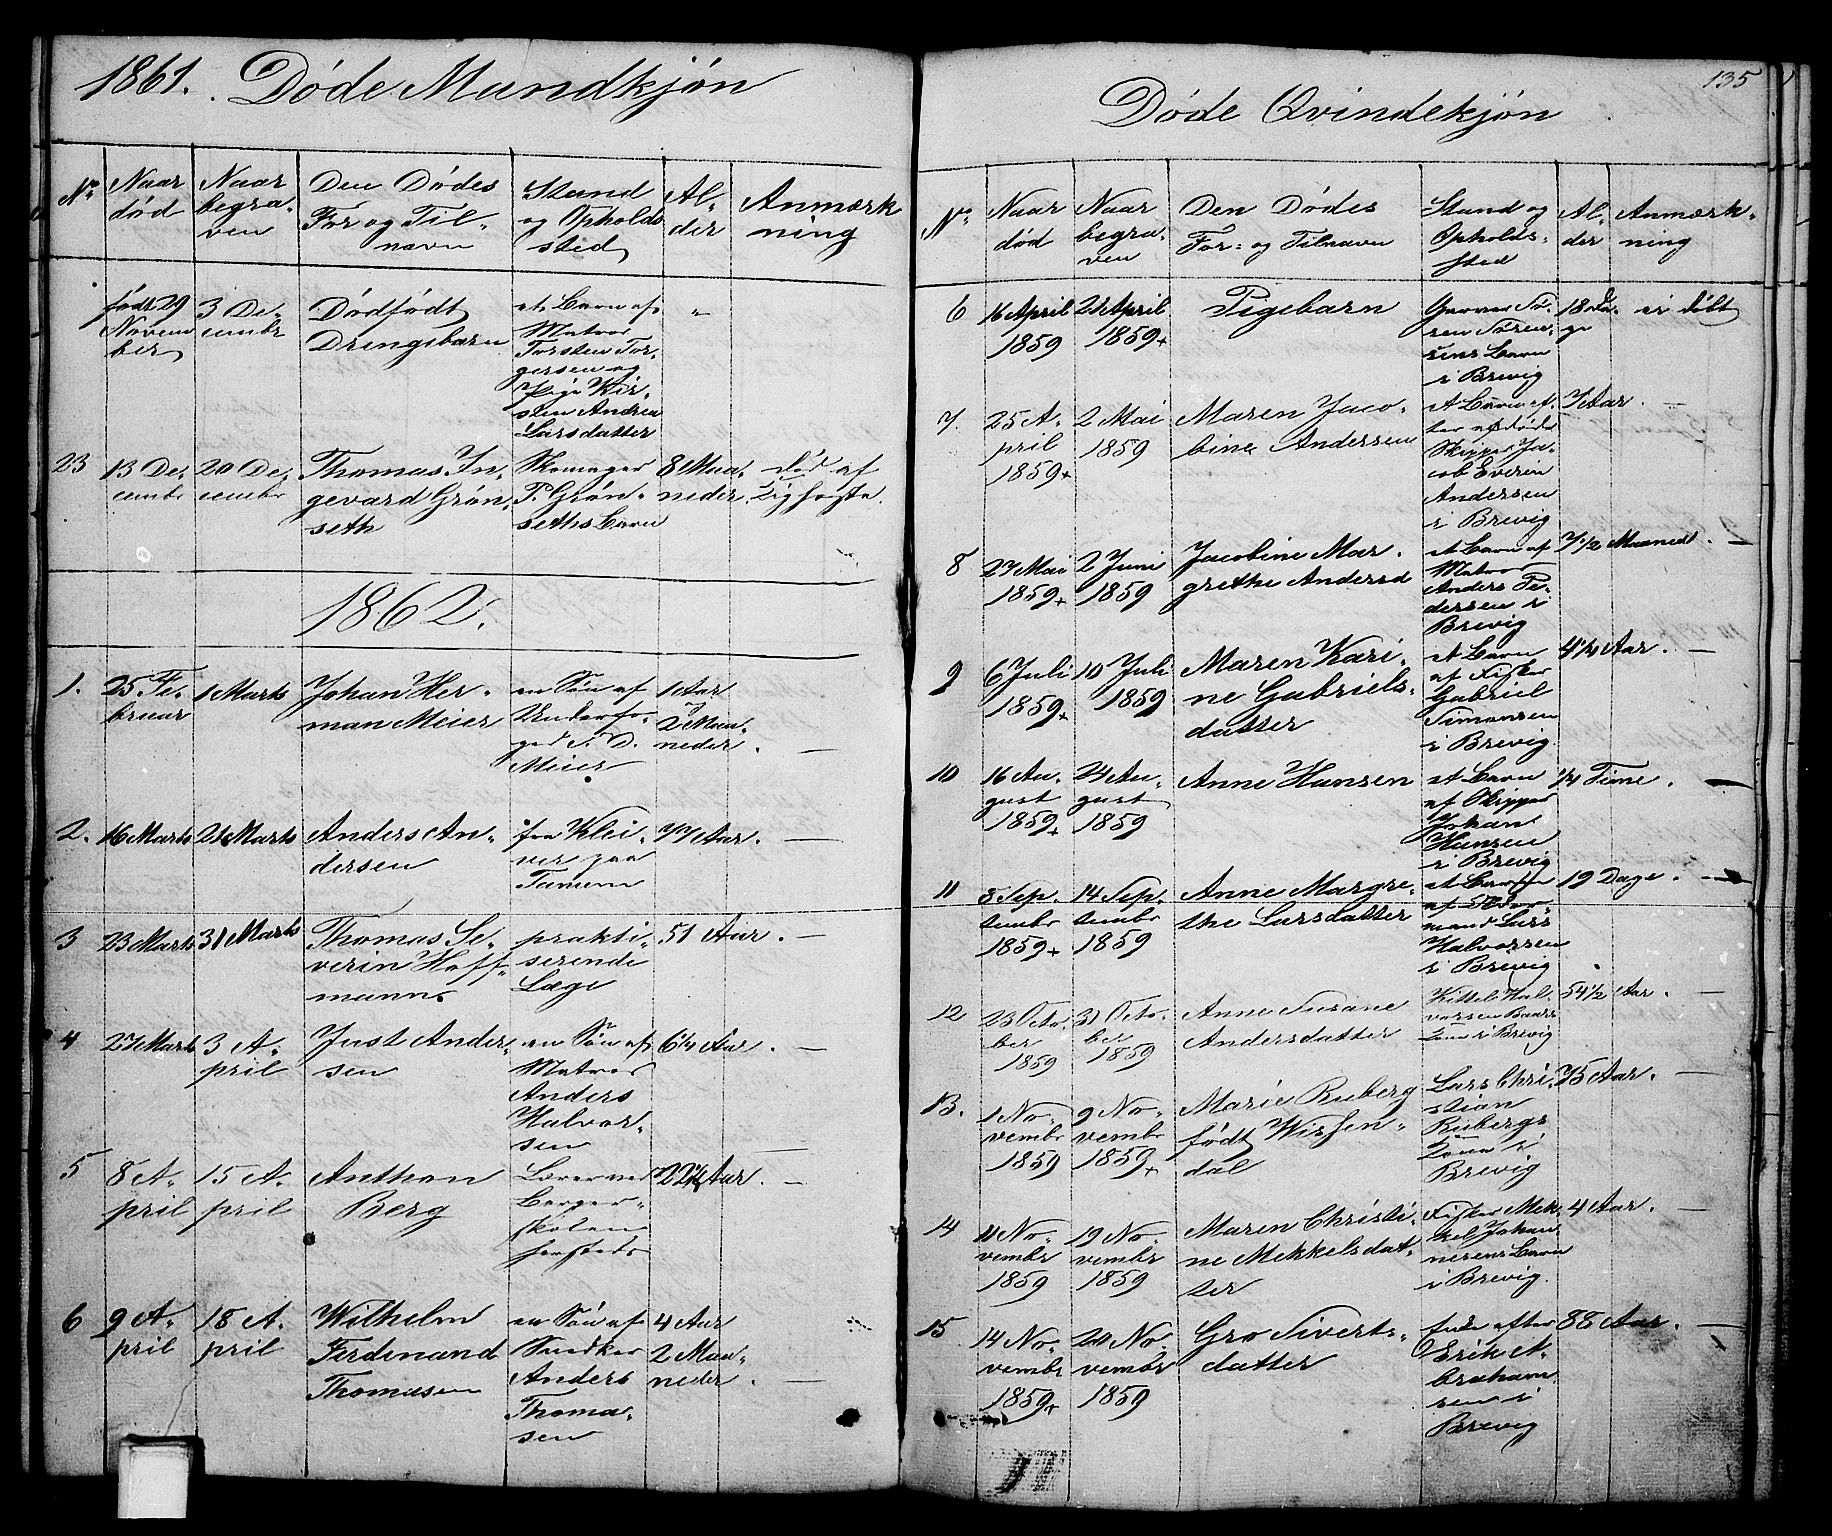 1861. Døde Mandkjøn
No
Naar død
Naar begra-
ven
Den Dødes
For og Til-
navn
Stand
og Opholds
sted
Al-
der
Anmærk
ning
født 29
Novem
ber
3 De-
cembr
Dødfødt
Drengebarn
et Barn af
Matros
Torsten Tor-
gersen og
Pige Kir-
sten Andrea
Larsdatter
"
23
13 De-
cembr
20 De-
cembr
Thomas In-
gevard Grøn-
seth
Skomager
P. Grøn-
seths Barn
8 Maa-
neder.
død af
1862.
1.
25 Fe-
bruar
1 Marts
Johan Her-
man Meier
en Søn af
Underfo-
ged
Meier
1 Aar
2 Maa-
neder.
—
2.
16 Marts
21 Marts
Anders An-
dersen
fra Klei-
ver paa
77 Aar.
—
3
23 Marts
31 Marts
Thomas Se-
verin Hoff-
mann.
prakti-
serende
Læge
51 Aar.
—
4
27 Marts
3 A-
pril
Just Ander-
sen
en Søn af
Matros
Anders
Halvor-
sen
6 1/4 Aar.
—
5
8 A-
pril
15 A-
pril
Anthon
Berg
Lærer ved
Borger-
skolen
22 1/2 Aar.
—
6
9 A-
pril
18 A-
pril
Wilhelm
Ferdinand
Thomasen
en Søn af
Snedker
Anders
Thoma-
sen
4 Aar
2 Maa-
neder.
—
135
Døde Qvindekjøn
No
Naar
død
Naar
begra-
ven
Den Dødes
For- og Tilnavn
Stand og
Opholds-
sted
Al-
der
Anmærk-
ning
6
16 April
1859
21 April
1859+
Pigebarn
Garver Sø-
ren Søren-
sens Barn
i Brevig
18 Da-
ge
ei døbt
7.
25 A-
pril
1859+
2 Mai
1859
Maren Jaco-
bine Andersen
et Barn ef-
ter afdøde
Skipper Ja-
cob Everin
Andersen
i Brevig
7 Aar.
—
8
27 Mai
1859+
2 Juni
1859
Jacobine Mar-
grethe Andersd
et Barn af
Matros
Anders Pe-
dersen i
Brevig
7 1/2 Maaned.
—
9
6 Juli
1859+
10 Juli
1859
Maren Kari-
ne Gabriels-
datter
et Barn
af Fisker
Gabriel
Simonsen
i Brevig
4 1/4 Aar.
—
10
16 Au-
gust
1859+
24 Au-
gust
1859
Anne Hansen
et Barn
af Skipper
Johan
Hansen
i Brevig
1/4 Time.
—
11
5 Sep-
tembr
1859+
14 Sep-
tembr
1859
Anne Margre-
the Larsdatter
et Barn
af
mand Lars
Halvorsen
i Brevig
19 Dage.
—
12
23 Octo
ber
1859
31 Octo-
ber
1859
Anne Susane
Andersdatter
Kittel Hal-
vorsen
Kone i Brevig
54 1/2 Aar.
—
13.
1 No-
vembr
1859
9 No-
vembr
1859+
Marie Ruberg
født Wissen-
dal
Lars Chri-
stian
Rubergs
Kone i
Brevig
75 Aar.
—
14
11 No-
vembr
1859
19 No-
vembr
1859
Maren Christi-
ne Mekkelsdat-
ter
Fisker Mek-
kel Johan-
nesens Barn
i Brevig.
4 Aar.
—
15
14 No-
vembr
1859+
20 No-
vembr
1859
Gro Siverts-
datter
Enke efter
Erik A-
braham
sen i
Brevig
88 Aar.
—